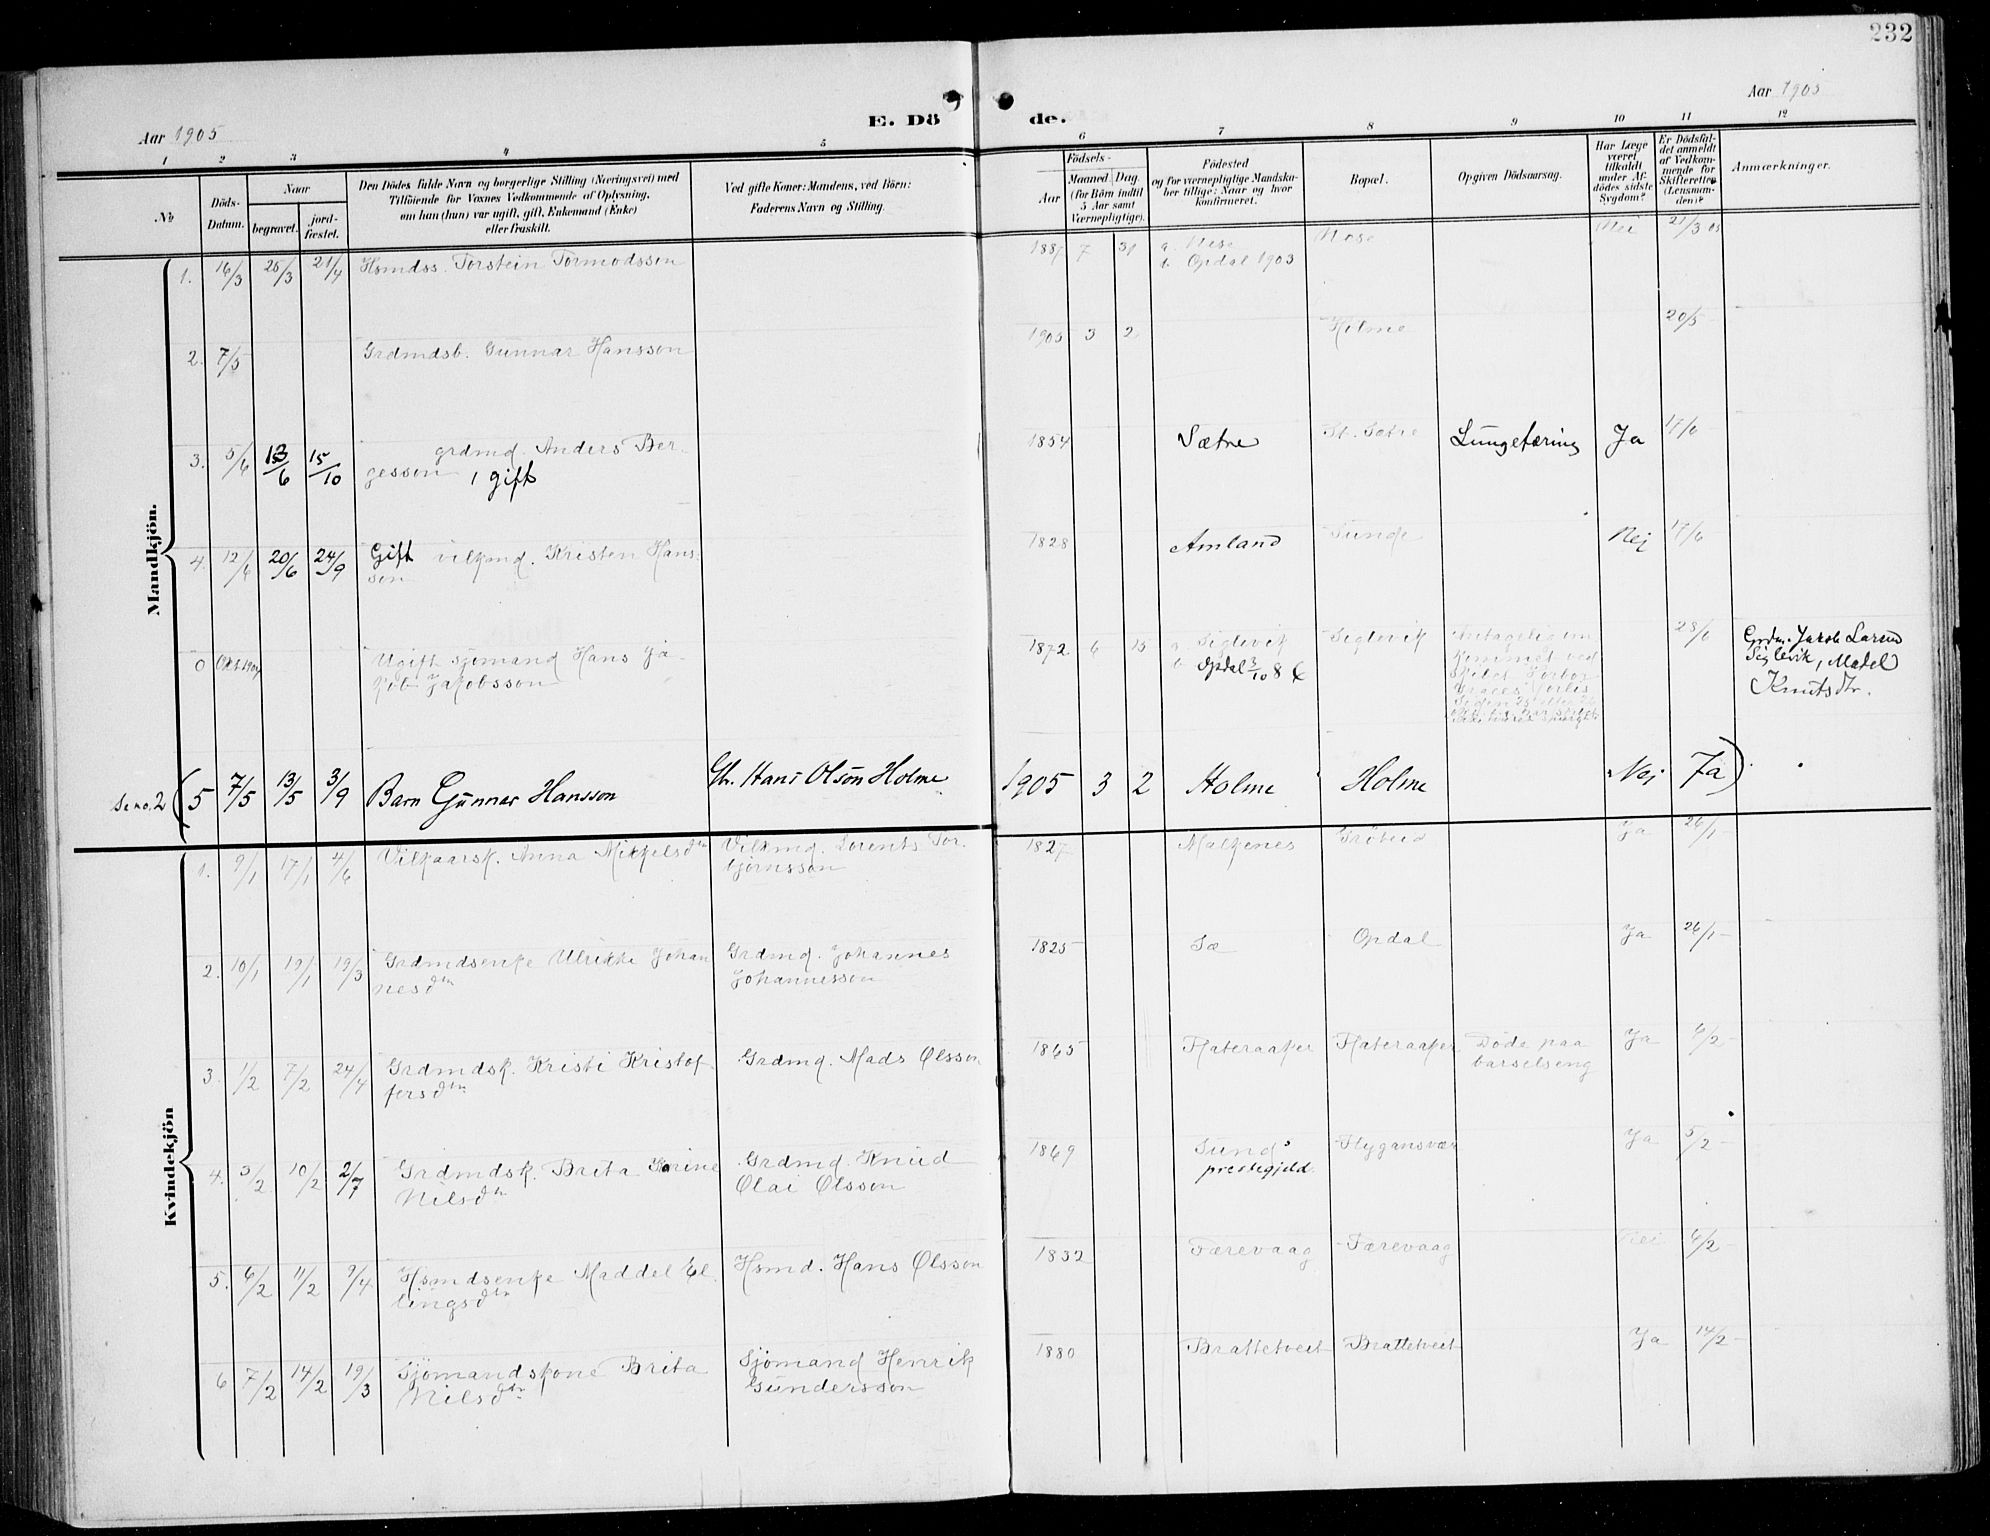 232
Aar 1905
E. Dö
de.
Aar 1905
1 2 3 4 5 6 7 8 9 10 11 12
No
Döds-
Datum.
Naar
begravet.
jord-
fæstet.
Den Dödes fulde Navn og borgerlige Stilling (Næringsvei) med
Tilföiende for Voxnes Vedkommende af Oplysning,
om han (hun) var ugift, gift, Enkemand (Enke)
eller fraskilt.
Ved gifte Koner: Mandens, ved Börn:
Faderens Navn og Stilling.
Födsels-
Aar
Maaned. Dag.
(for Börn indtil
5 Aar samt
Værnepligtige).
Födested
og for værnepligtige Mandska-
ber tillige: Naar og hvor
konfirmeret.
Bopæl.
Opgiven Dödsaarsag.
Har Læge
været
tilkaldt
under Af-
dödes sidste
Sygdom?
Er Dödsfal-
det anmeldt
af Vedkom-
mende for
Skifteretten
(Lensman-
den)?
Anmærkninger.
Mandkjön.
1. 16/3 25/3 21/4 Hsmdss. Torstein Tormodsson 1887 7 31 a. Nese Nese Nei 21/3 05
b. Opdal 1903
2. 7/5 Grdmdsb. Gunnar Hansson 1905 3 2 Holme 20/5
3. 5/6 13/6 15/10 grdmd. Anders Ber-
gesson, gift 1854 Sætre St. Sætre Lungetæring Ja 17/6
4. 12/6 20/6 24/9 Gift vilkmd. Kristen Hans-
son 1828 Amland Sunde Nej 17/6
0 Okt. 1904 Ugift sjömand Hans Ja-
kob Jakobsson 1872 6 15 a. Siglevik Siglevik
b. Opdal 3/10 86 28/6
Antagelig om-
kommet ved
Skibet
Grdm. Jacob Larsen
Siglevik, Madel
Knutsdtr.
Se no. 2 (5 7/5 13/5 3/9 Barn Gunnar Hansson Gbr. Hans Olson Holme 1905 3 2 Holme Holme Nej Ja)
Kvindekjön
1. 9/1 17/1 4/6 Vilkaarsk. Anna Mikkelsdtr Vilkmd. Lorents Tor-
björnsson 1827 Malkenes Tröbeid Ja 26/1
2. 10/1 19/1 19/3 Grdmdsenke Ulrikke Johan
nesdtr Grdmd. Johannes
Johannesson 1825 Sæ Opdal Ja 26/1
3. 1/2 7/2 24/4 Grdmdsk. Kristi Kristof-
fersdtr Grdmd. Mads Olsson 1865 Flateraaker Flateraaker Döde paa
barselseng Ja 6/2
4. 3/2 10/2 2/7 Grdmdsk. Brita Karine
Nilsdtr Grdmd. Knud
Olai Olsson 1869 Sunds
prestegjeld. Flygansvær Ja 5/2
5. 6/2 11/2 9/4 Hsmdsenke Maddel El-
lingsdtr Hsmd. Hans Olsson 1832 Færevaag Færevaag Nei 6/2
6 7/2 14/2 19/3 Sjömandskone Brita
Nilsdtr Sjömand Henrik
Gundersson 1880 Brattetveit Brattetveit Ja 14/2